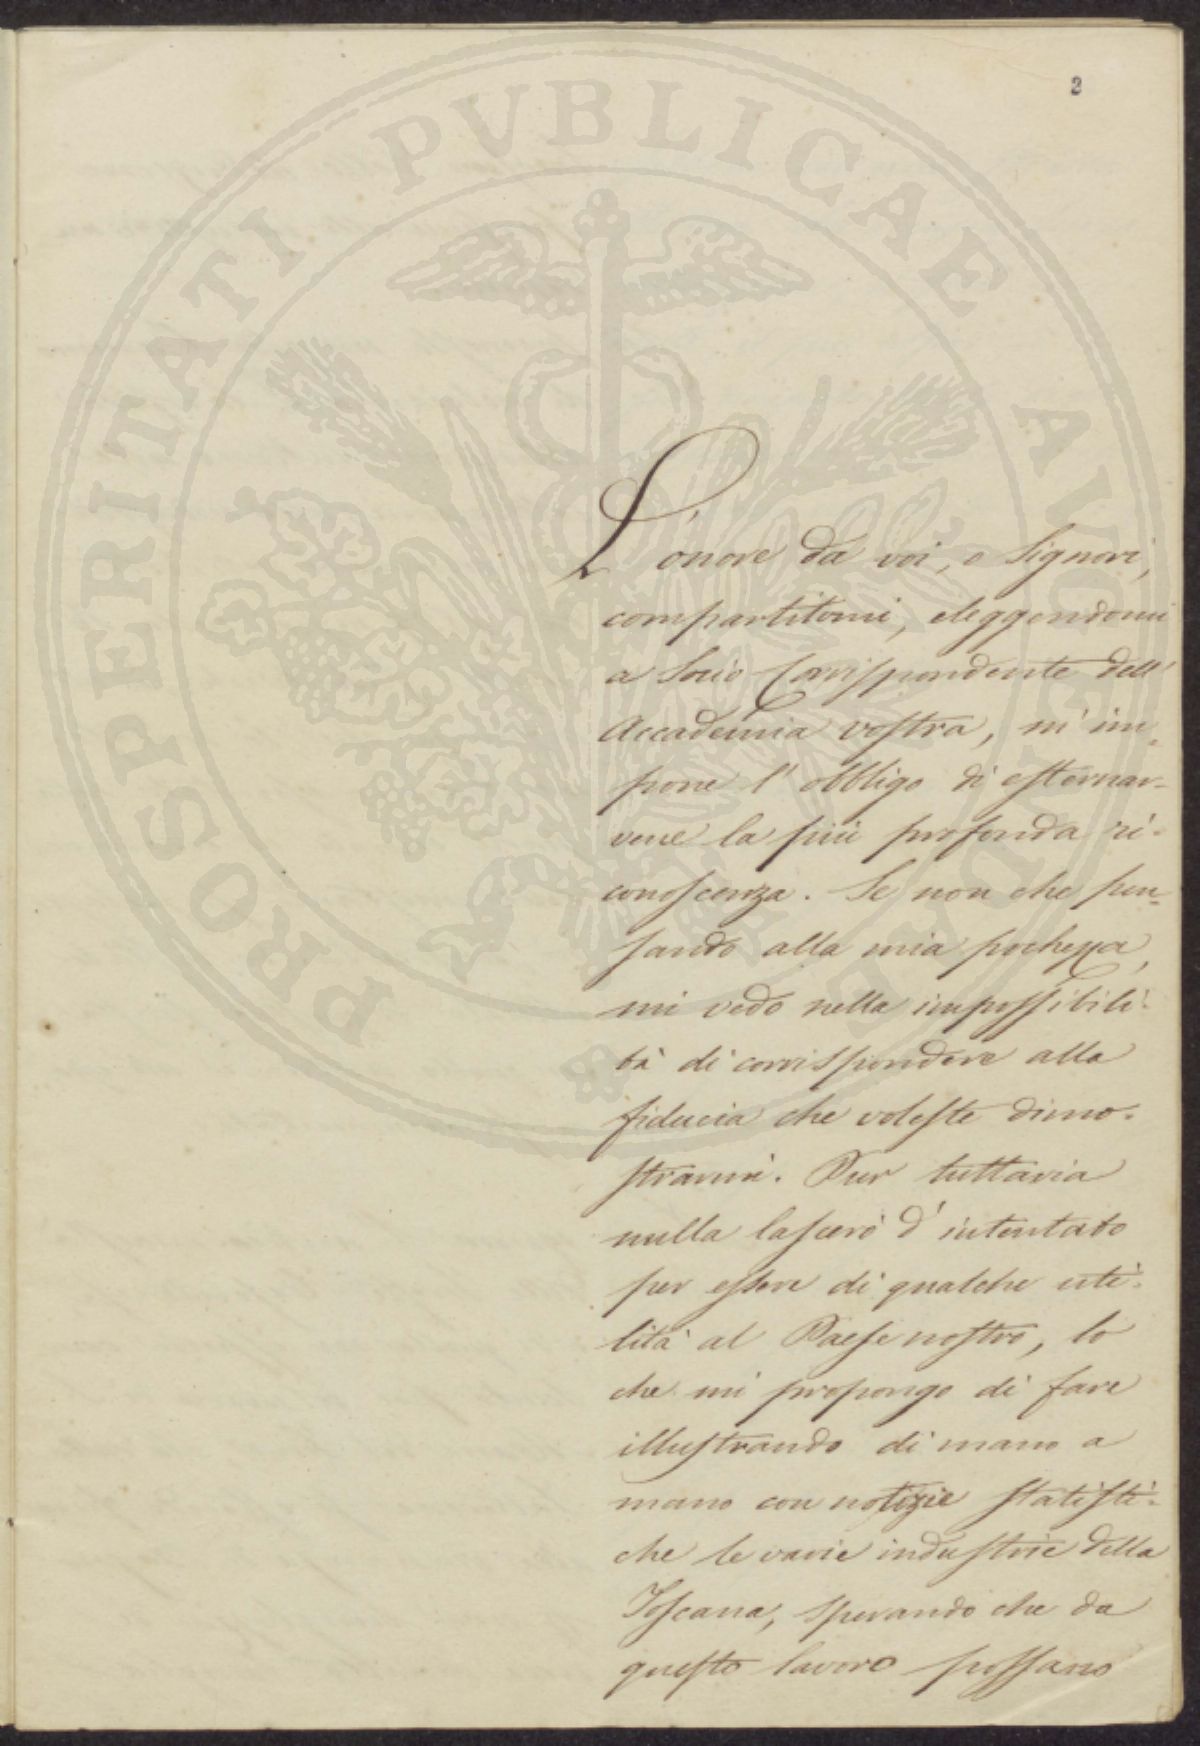 2
PROSPERITATI PVBLICAE AVGENDAE
L'onore da voi, o Signori,
compartitomi, eleggendomi
a Socio Corrispondente dell'
Accademia vostra, m'im-
pone l'obbligo di esternar-
vene la più profonda ri-
conoscenza. Se non che pen-
sando alla mia pochezza,
mi vedo nella impossibili-
tà di corrispondere alla
fiducia che voleste dimo-
strarmi. Pur tuttavia
nulla lascerò d'intentato
per essere di qualche uti-
lità al Paese nostro, lo
che mi propongo di fare
illustrando di mano a
mano con notizie statisti-
che le varie industrie della
Toscana, sperando che da
questo lavoro possano